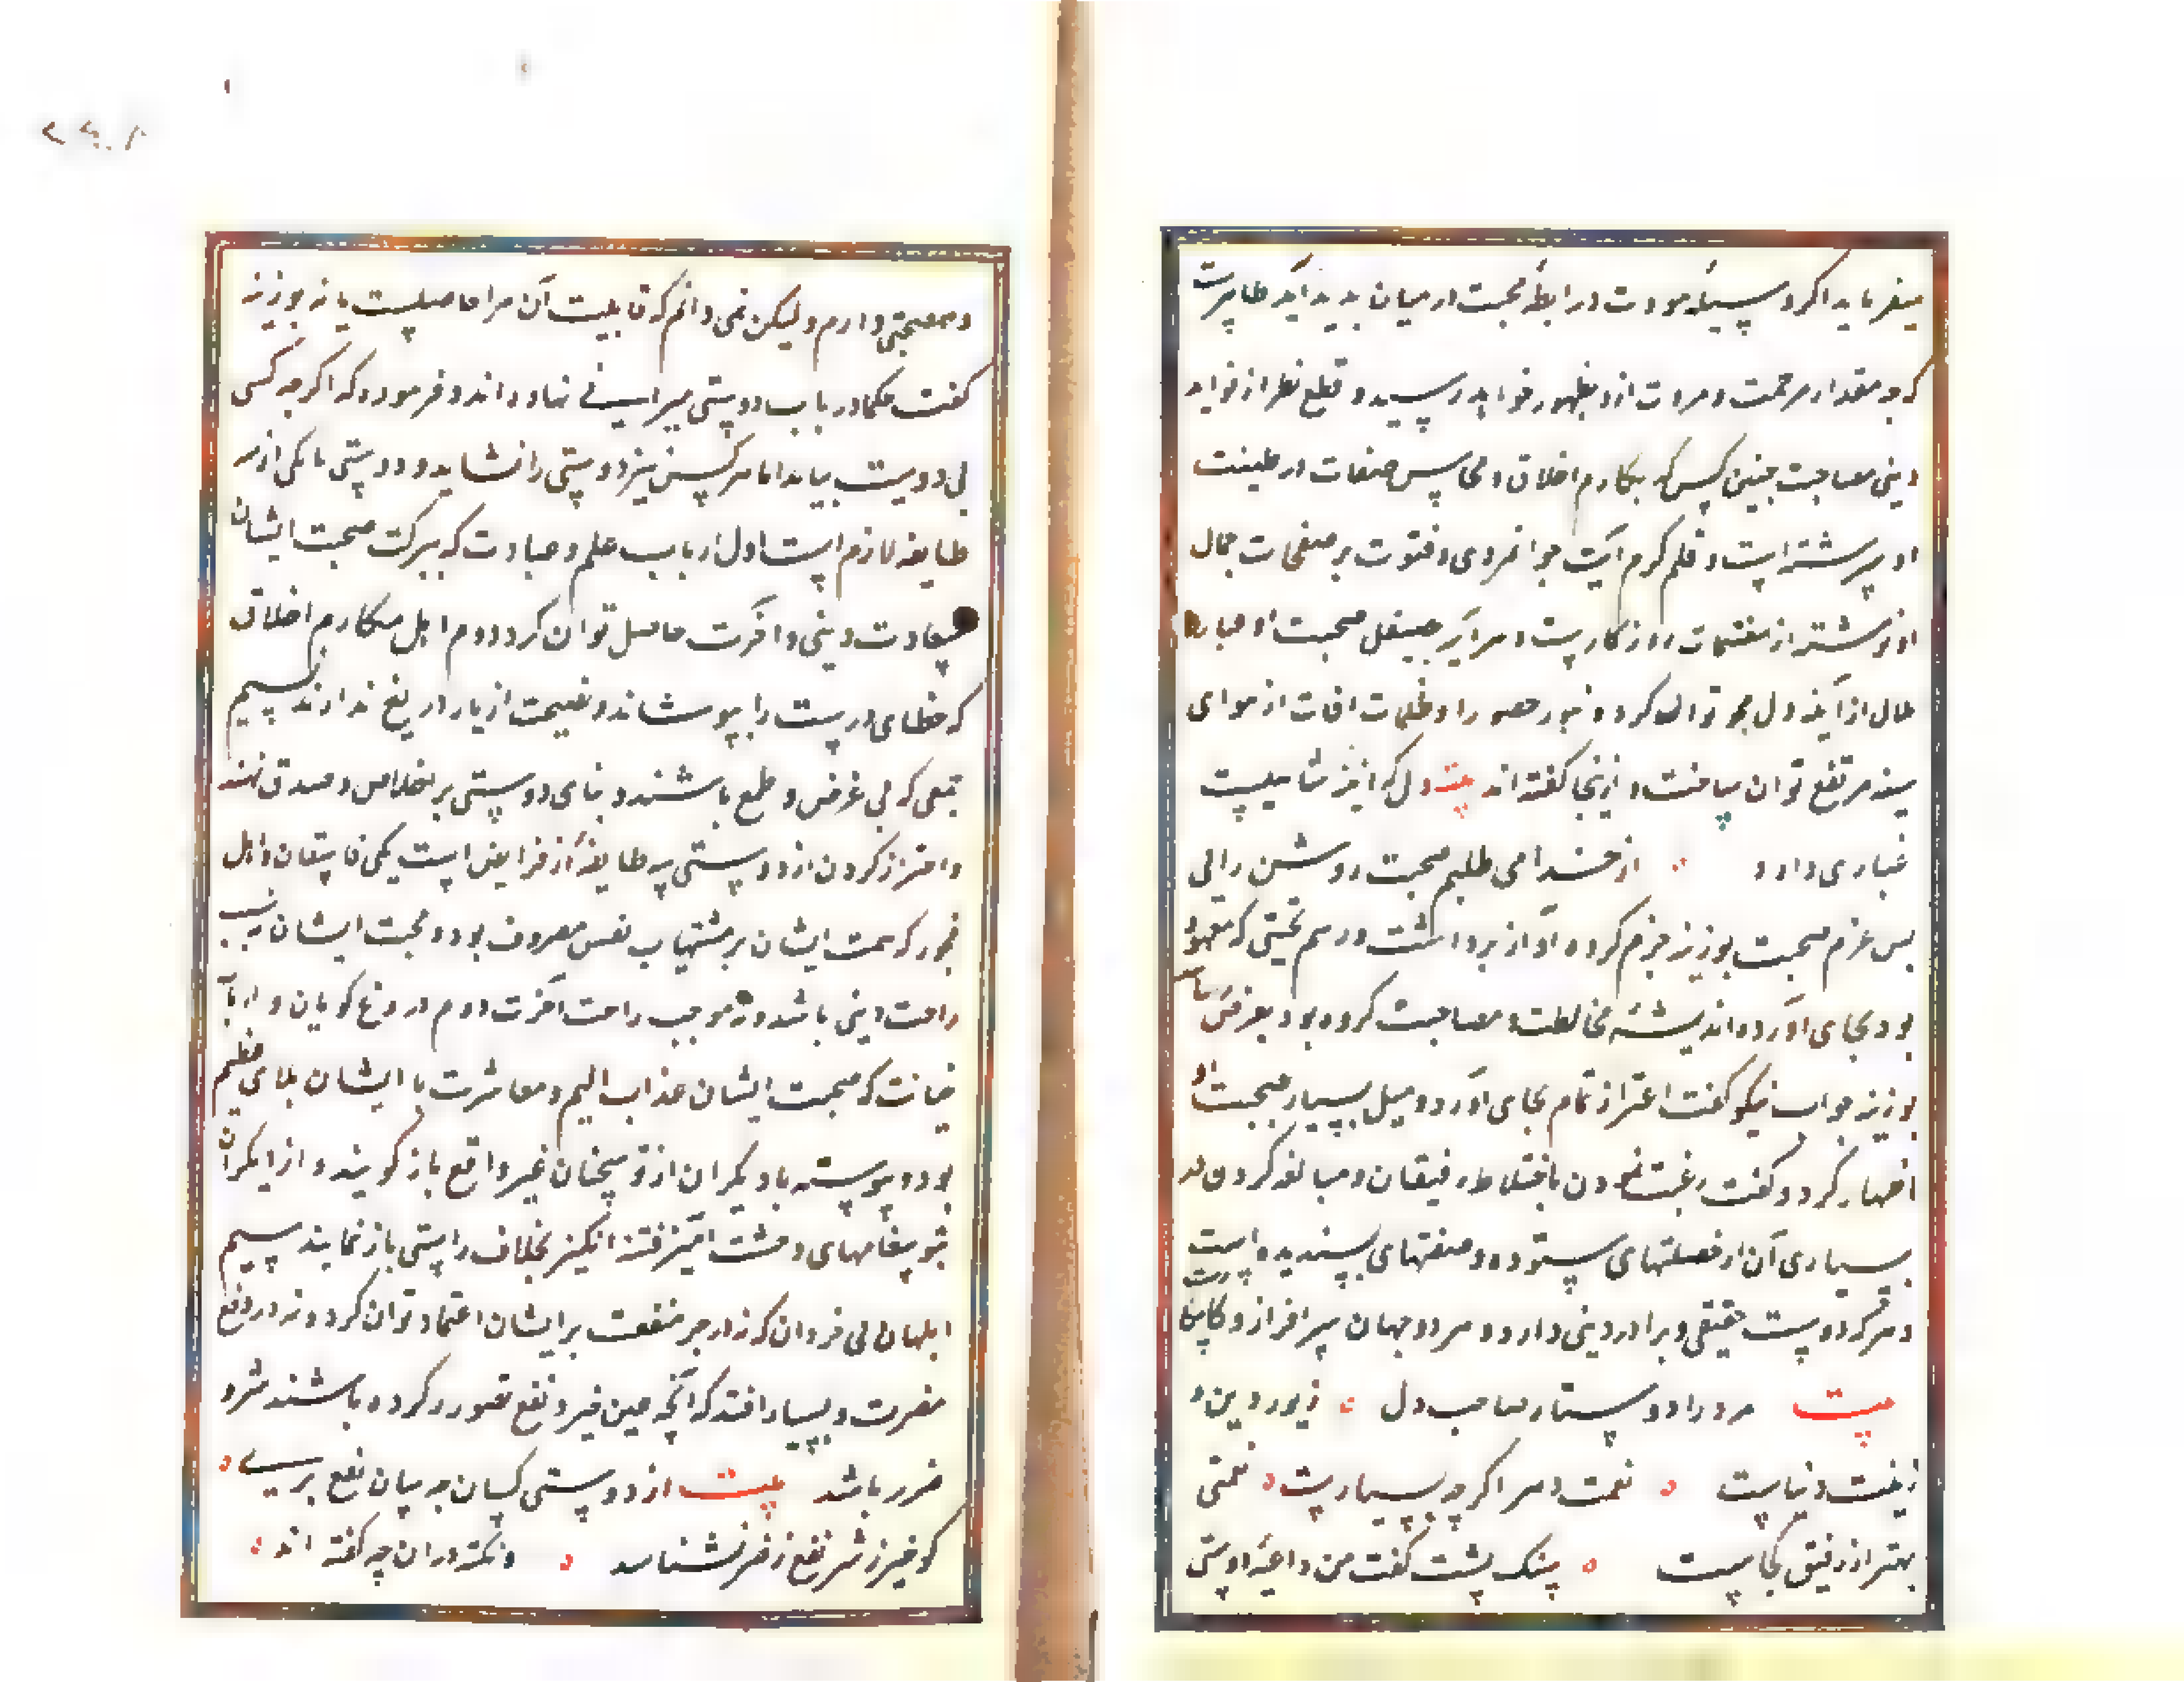 میفرماید اکر وسیلهٔ مودت و رابطهٔ محبت در میان پدید آید ظاهرست
که چه مقدار مرحمت و مروت ازو بظهور خواهد رسید و قطع نظر از فواید
دینی مصاحبت چنین کس که بمکارم اخلاق و محاسن صفات در طینت
او سرشته است و قلم کرم آیت جوانمردی و فتوت بر صفحات جمال
او نوشته از مغتنمات روزکارست و هر آینه بصیقل صحبت او غبار
ملال از آینه دل محو توان کرد و بنور حضور او ظلمات افات از هوای
سینه مرتفع توان ساخت و ازینجا کفته اند بیت دل که اینه شاهیست
غباری دارد از خدا می طلبم صحبت روشن رایی
پس عزم صحبت بوزینه جزم کرده آواز برداشت و رسم تحیتی که معهود
بود بجای آورده اندیشه مخالطت و مصاحبت کرده بود بعرض رسانید
بوزینه جواب نیکو کفت اعتزاز تمام بجای آورد و میل بسیار بصحبت او
اظهار کرد و کفت رغبت نمودن باختلاط رفیقان و مبالغه کردن در
بسیاری آن از خصلتهای ستوده و صفتهای پسندیده است
و هر که دوست حقیقی و برادر دینی دارد در هر دو جهان سرافراز و کامکارست
بیت مرد را دوستدار صاحب دل زیور دین و
زینت دنیاست نعمت دهر اکرچه بسیارست نعمتی
بهتر از رفیق کجاست سنک پشت کفت من داعیهٔ دوستی
و صحبتی دارم ولیکن نمی دانم که قابلیت آن مرا حاصلست یا نه بوزینه
کفت حکما در باب دوستی میزانی نهاده اند و فرموده که اکرچه کسی
بی دوست نباید اما هر کس نیز دوستی را نشاید و دوستی با یکی از سه
طایفه لازم است اول ارباب علم و عبادت که ببرکت صحبت ایشان
سعادت دینی و آخرت حاصل توان کرد دوم اهل مکارم اخلاق
که خطای دوست را بپوشاند و نصیحت از یار دریغ ندارند سیم
جمعی که بی غرض و طمع باشند و بنای دوستی بر اخلاص و صدق نهند
و احتراز کردن از دوستی سه طایفه از فرایض است یکی فاسقان و اهل
فجور که همت ایشان بر مشتهیات نفس مصروف بود و محبت ایشان نه سبب
راحت دینی باشد و نه موجب راحت آخرت دوم دروغ کویان و ارباب
خیانت که صحبت ایشان عذاب الیم و معاشرت با ایشان بلای عظیم
بود و پیوسته با دیکران از تو سخنان غیر واقع باز کویند و از دیکران
بتو پیغامهای وحشت آمیز فتنه انکیز بخلاف راستی باز نمایند سیم
ابلهان بی خردان که نه در جر منفعت بر ایشان اعتماد توان کرد و نه در دفع
مضرت و بسیار افتد که آنچه عین خیر و نفع تصور کرده باشند شر و
ضرر باشد بیت از دوستی کسان چه سان نفع بری
کو خیر ز شر نفع ز ضر نشناسد و نکته دران چه کفته اند